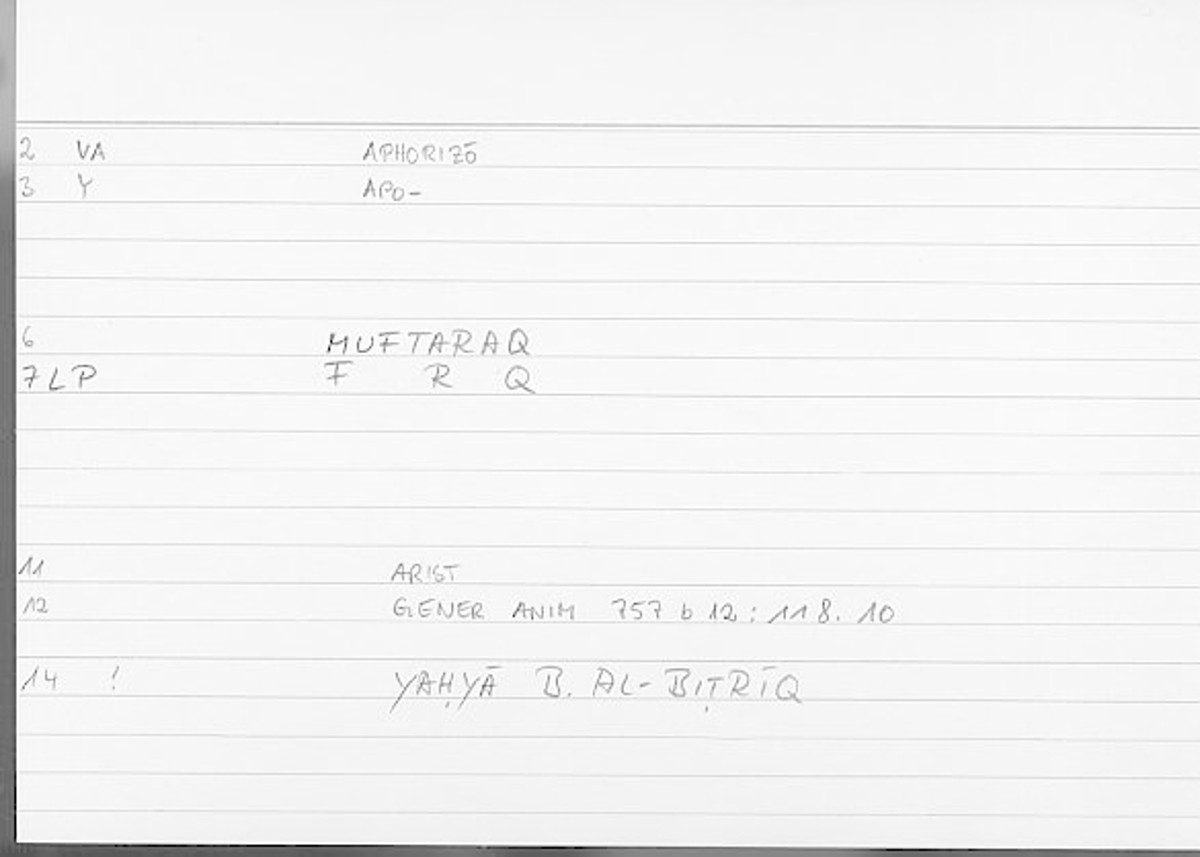 2 VA APHORIZŌ
3 Y APO-
6 MUFTARAQ
7 LP F R Q
11 ARIST
12 GENER ANIM 757 b 12 : 118. 10
14 ! YAḤYĀ B. AL-BIṬRĪQ